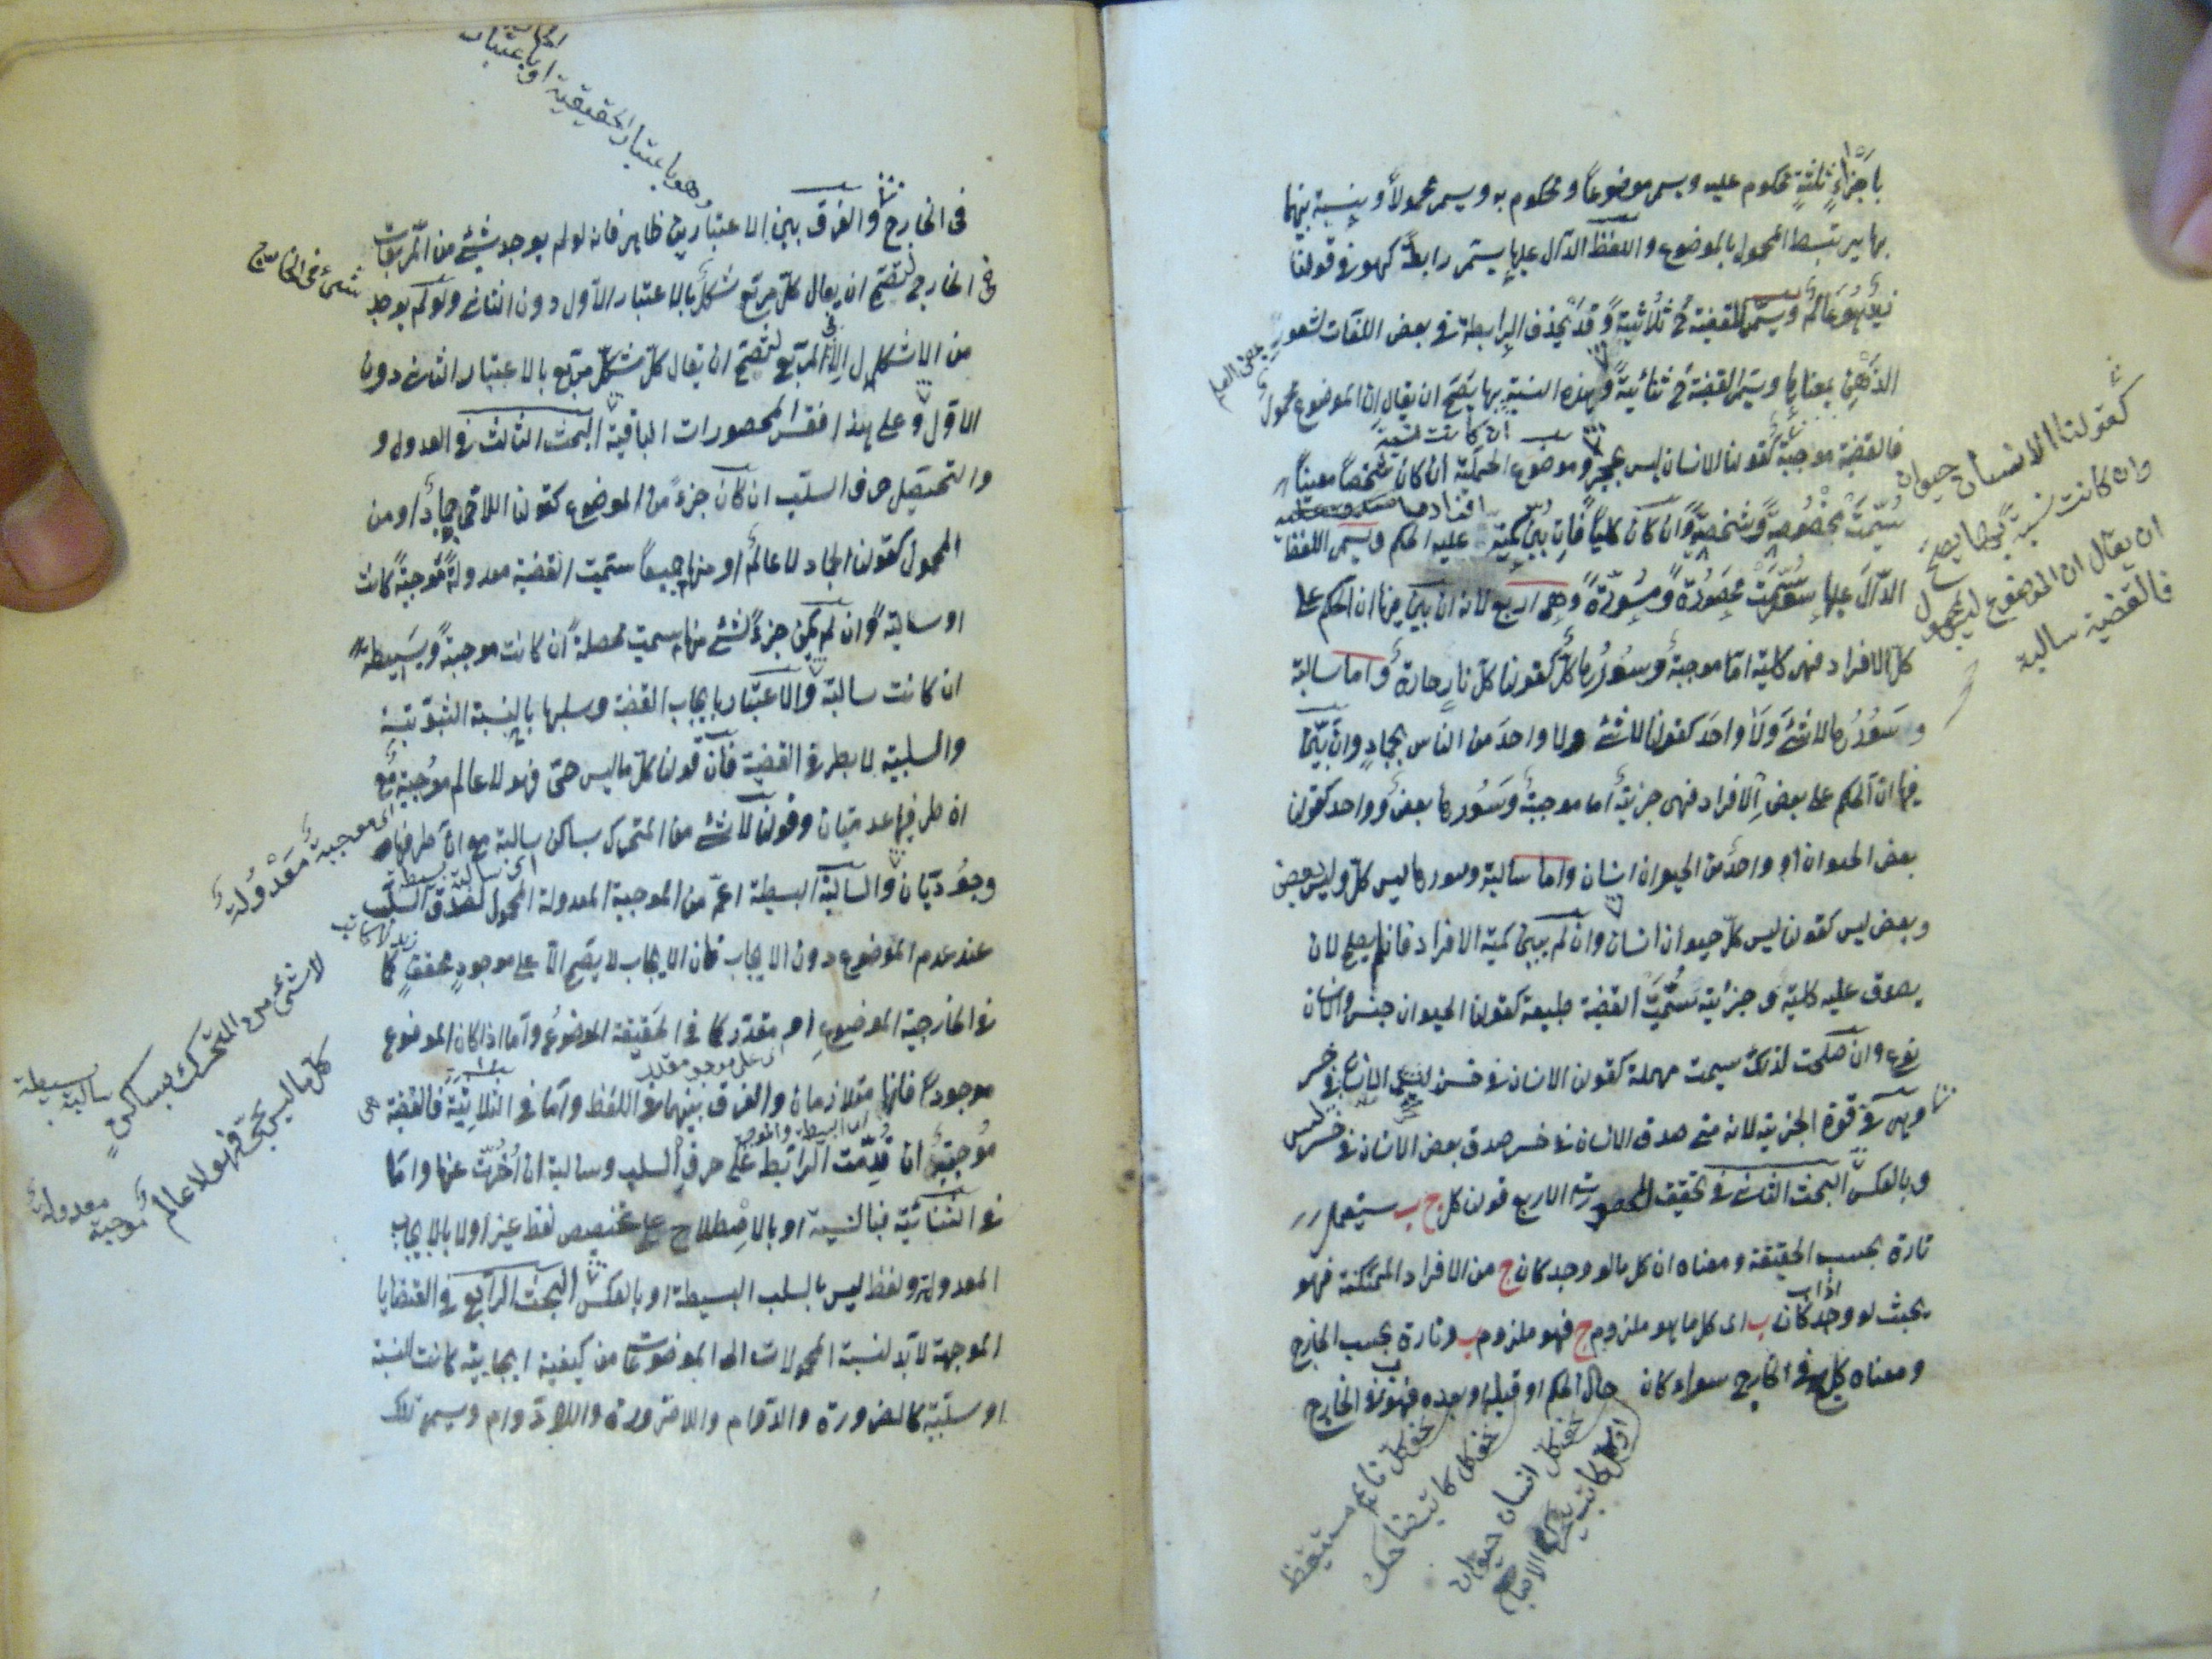 باجزاء ثلثة محكوم عليه ويسمى موضوعاً ومحكوم به ويسمى محمولاً ونسبة بينهما
بها يرتبط المحمول بالموضوع واللفظ الدال عليها يسمى رابطة كهو في قولنا
زيد هو عالم ويسمى القضية ح ثلاثية وقد يحذف الرابطة في بعض اللغات لشعور
الذهن بمعناها ويسمى القضية ح ثنائية وهذه النسبة بها يصح ان يقال ان الموضوع محمول
فالقضية موجبة كقولنا الانسان ليس بحجر وموضوع الحملية ان كان شخصاً معيناً
سميت مخصوصة وشخصية وان كان كلياً فان بين كمية افراد ما عليه الحكم ويسمى اللفظ
الدال عليها سوراً سميت محصورة ومسورة وهى اربع لانه ان بين فيها ان الحكم على
كل الافراد فهى كلية اما موجبة وسورها كل كقولنا كل نار حارة واما سالبة
وسورها لا شئ ولا واحد كقولنا لا شئ ولا واحد من الناس بجماد وان بين
فيها ان الحكم على بعض الافراد فهى جزئية اما موجبة وسورها بعض وواحد كقولنا
بعض الحيوان او واحد من الحيوان انسان واما سالبة وسورها ليس كل وليس بعض
وبعض ليس كقولنا ليس كل حيوان انسان وان لم يبين كمية الافراد فان لم يصلح لان
يصدق عليه كلية وجزئية سميت القضية طبيعة كقولنا الحيوان جنس والانسان
نوع وان صلحت لذلك سميت مهملة كقولنا الانسان في خسر ليس الانسان في خسر
وهى في قوة الجزئية لانه متى صدق الانسان في خسر صدق بعض الانسان في خسر
وبالعكس البحث الثانى في تحقيق المحصورات الاربع قولنا كل ج ب يستعمل
تارة بحسب الحقيقة ومعناه ان كل ما لو وجد كان ج من الافراد الممكنة فهو
بحيث لو وجد كان ب اى كل ما هو ملزوم ج فهو ملزوم ب وتارة بحسب الخارج
ومعناه كل ج في الخارج سواء كان حال الحكم او قبله او بعده فهو ب في الخارج
كقولنا الانسان حيوان
وان كانت نسبة بها يصح
ان يقال ان الموضوع ليس بمحمول
فالقضية سالبة
نحو كل نائم مستيقظ
نحو كل كاتب ضاحك
نحو كل انسان حيوان
وهو باعتبار الحقيقية او باعتبار
في الخارج والفرق بين الاعتبارين ظاهر فانه لو لم يوجد شئ من المربعات
في الخارج لتصح ان يقال كل مربع شكل بالاعتبار الاول دون الثانى ولو لم يوجد شئ في الخارج
من الاشكال الا المربع لتصح ان يقال كل شكل مربع بالاعتبار الثانى دون
الاول وعلى هذا فقس المحصورات الباقية البحث الثالث في العدول و
والتحصيل حرف السلب ان كان جزءً من الموضوع كقولنا اللاحى جماد او من
المحمول كقولنا الجماد لا عالم او منهما جميعاً سميت القضية معدولة موجبة كانت
او سالبة وان لم يكن جزءً لشئ منهما سميت محصلة ان كانت موجبة وبسيطة
ان كانت سالبة والاعتبار بايجاب القضية وسلبها بالنسبة الثبوتية
والسلبية لا بطرفى القضية فان قولنا كل ما ليس حى فهو لا عالم موجبة مع
ان طرفيها عدميان وقولنا لا شئ من المتحرك بساكن سالبة مع ان طرفيها
وجوديان والسالبة البسيطة اعم من الموجبة المعدولة المحمول لصدق السلب
عند عدم الموضوع دون الايجاب فان الايجاب لا يصح الا على موجود محقق كما
في الخارجية الموضوع او مقدر كما في الحقيقة الموضوع واما اذا كان الموضوع
موجوداً فانهما متلازمان والفرق بينهما في اللفظ واما في الثلاثية فالقضية
موجبة ان قدمت الرابطة على حرف السلب وسالبة ان اخرت عنها واما
في الثنائية فبالنية او بالاصطلاح على تخصيص لفظ غير اولا بالايجاب
المعدولة ولفظ ليس بالسلب البسيطة او بالعكس البحث الرابع في القضايا
الموجهة لا بد لنسبة المحمولات الى الموضوعات من كيفية ايجابية كانت النسبة
او سلبية كالضرورة والدوام واللاضرورة واللادوام ويسمى تلك
اى موجبة معدولة
اى سالبة بسيطة
اى على موجود مقدر
لا شئ من المتحرك بساكن
سالبة بسيطة
كل ما ليس بحى فهو لا عالم
موجبة معدولة